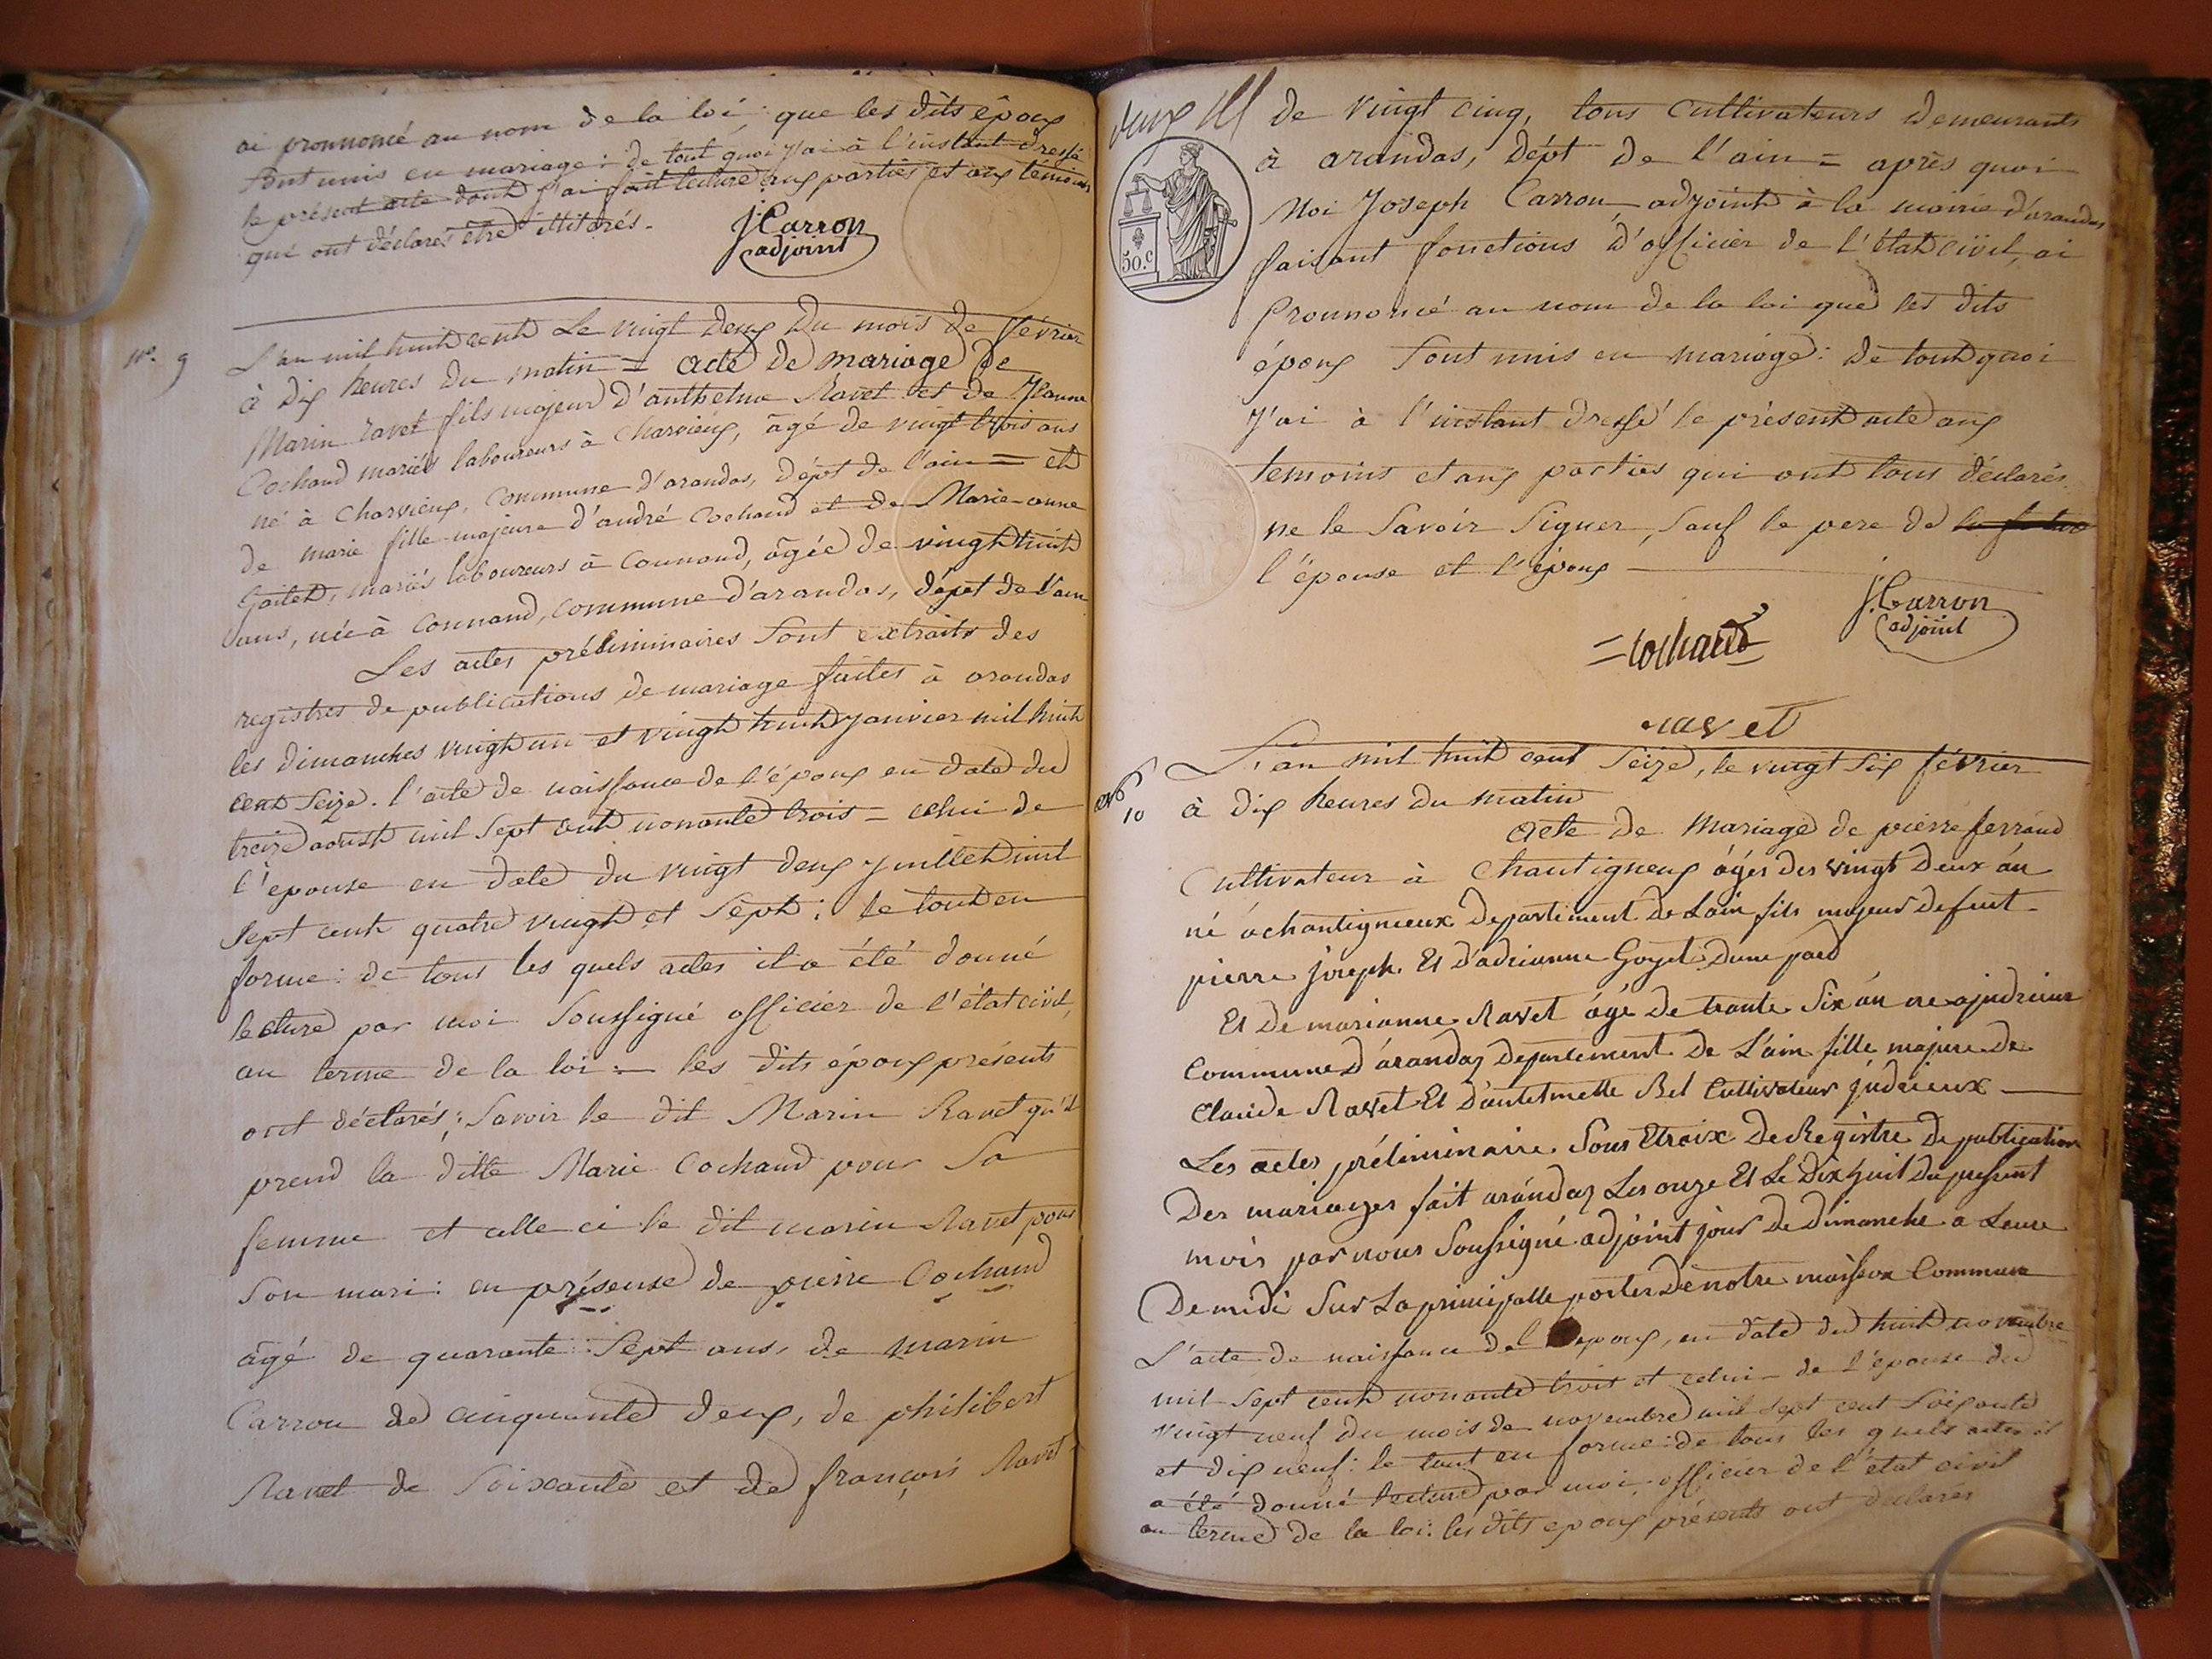 ai prononcé au nom de la loi, que les dits époux
sont unis en mariage : de tout quoi j'ai à l'instant dressé
le présent acte dont j'ai fait lecture aux parties et aux témoins
qui ont déclarés être illitérés.
J. Carron
adjoint
No. 9
L'an mil huit cent Le vingt deux Du mois de février
à Dix heures Du matin = acte de mariage De
Marin ravet fils majeur d'anthelme Ravet et de Jeanne
Cochand mariés laboureurs à Charvieux, âgé de vingt trois ans
né à Charvieux, Commune d'arandas, Dépt de l'ain = et
de marie fille majeure d'andré Cochand et de Marie-anne
Goilet, mariés laboureurs à Connand, âgée de vingt huit
ans, née à Connand, commune d'arandas, dépt de l'ain
Les actes préliminaires sont extraits des
registres de publications de mariage faites à arandas
les dimanches vingt un et vingt huit janvier mil huit
cent seize. l'acte de naissance de l'époux en date du
treize aoust mil sept cent nonante trois = celui de
l'épouse en date du vingt deux juillet mil
sept cent quatre vingt et sept : le tout en
forme : de tous les quels actes il a été donné
lecture par moi soussigné officier de l'état civil,
au terme de la loi :— les dits époux présents
ont déclarés ; savoir le dit Marin Ravet qu'il
prend la ditte Marie Cochand pour sa
femme et celle ci le dit marin Ravet pour
son mari : en présense de pierre Cochand
âgé de quarante sept ans, de marin
Carron de cinquante deux, de philibert
Ravet de soixante et de françois Ravet
deux
50.c
de vingt cinq, tous cultivateurs demeurants
à arandas, Dépt de l'ain = après quoi
Moi Joseph Carron adjoint à la mairie d'arandas
faisant fonctions d'officier de l'état civil, ai
prononcé au nom de la loi que les dits
époux sont unis en mariage : de tout quoi
j'ai à l'instant dressé le présent acte aux
temoins et aux parties qui ont tous déclarés
ne le savoir signer, sauf le pere de la future
l'épouse et l'époux
J. Carron
adjoint
= Cochand =
ravet
No 10
L'an mil huit cent seize, le vingt six février
à dix heures du matin
acte de Mariage de pierre ferrand
Cultivateur à Chantigneux âgés des vingt Deux án
né áchantignieux Departiment De Lain fils majeur defeut
pierre joseph. Et D'adrianne Goyet Dune pard
Et De marianne Ravet ágé De trante Six án né ajudrieux
Commune D'árandaz Departement De L'ain fille majeure de
Claude Ravet Et D'antelmette Bel Cultivateur júdrieux
Les actes préliminaire Sous Etraix De Registre De publication
Des mariages fait arándaz Les onze Et Le Dix huit Du present
mois par nous Soussigné adjoint jour De dimanche a Leure
De midi Sur La principalle porter De notre maison Commune
L'acte de naissance de l'époux, en date du huit novembre
mil sept cent nonante trois et celui de l'épouse du
vingt neuf du mois de novembre mil sept cent soixante
et dix neuf : le tout en forme : de tous les quels actes il
a été donné lecture par moi officier de l'état civil
au terme de la loi : les dits époux présents ont déclarés